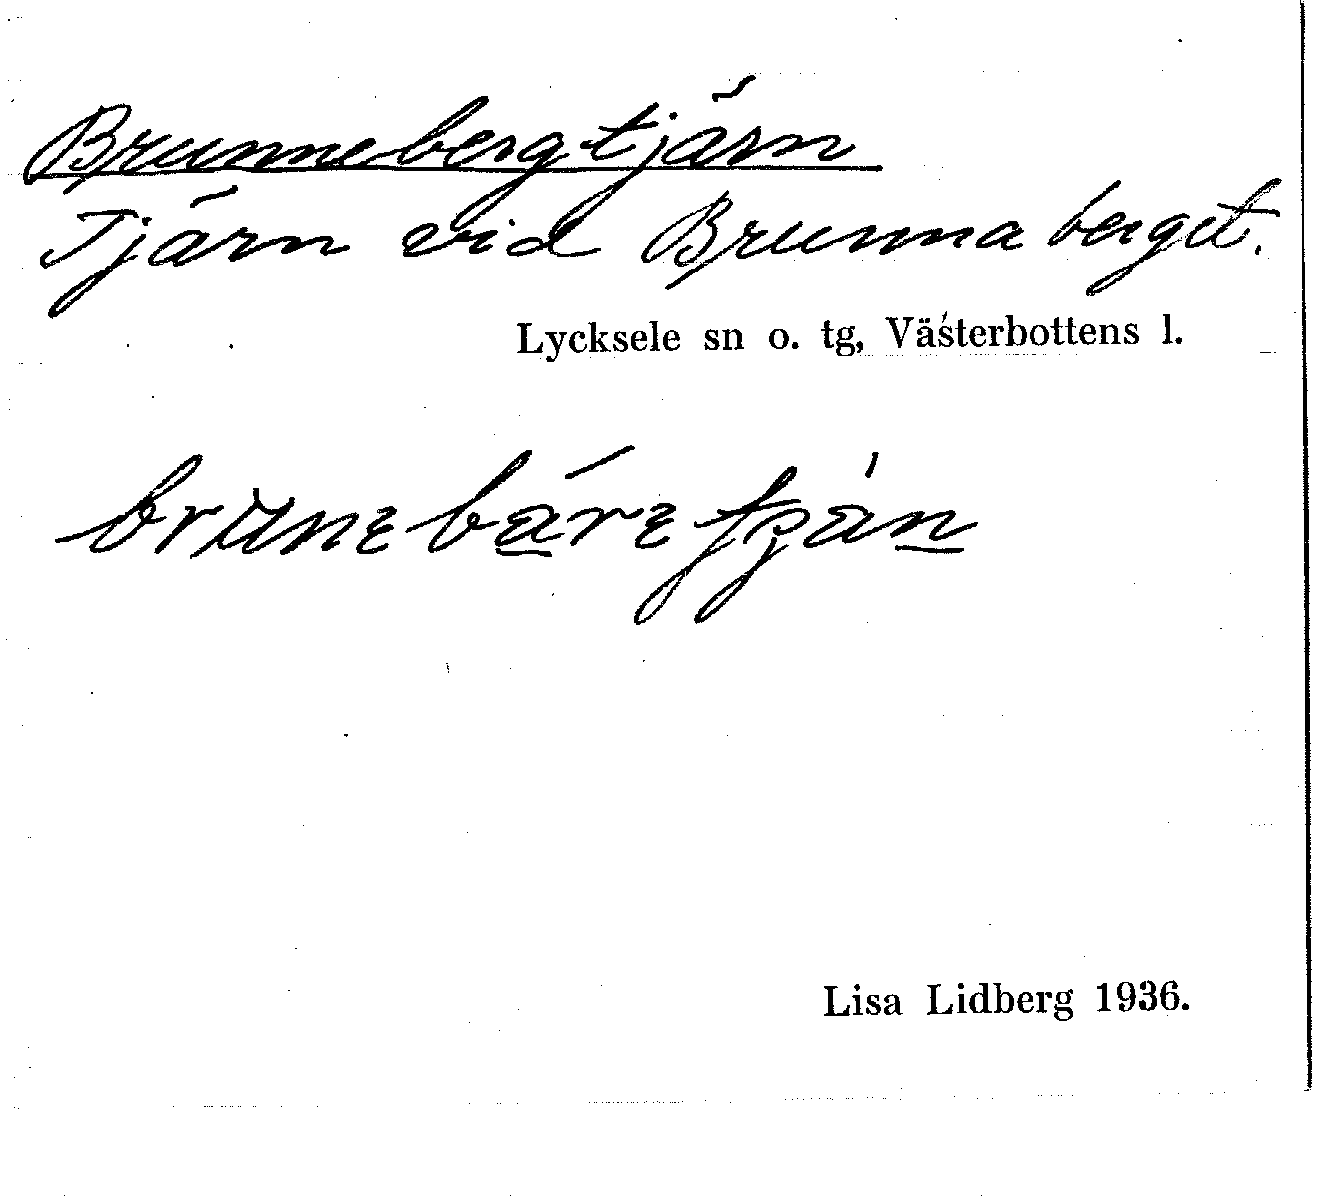 Brunnebergtjärn
Tjärn vid Brunnaberget.
Lycksele sn o. tg, Västerbottens l.
Lisa Lidberg 1936.